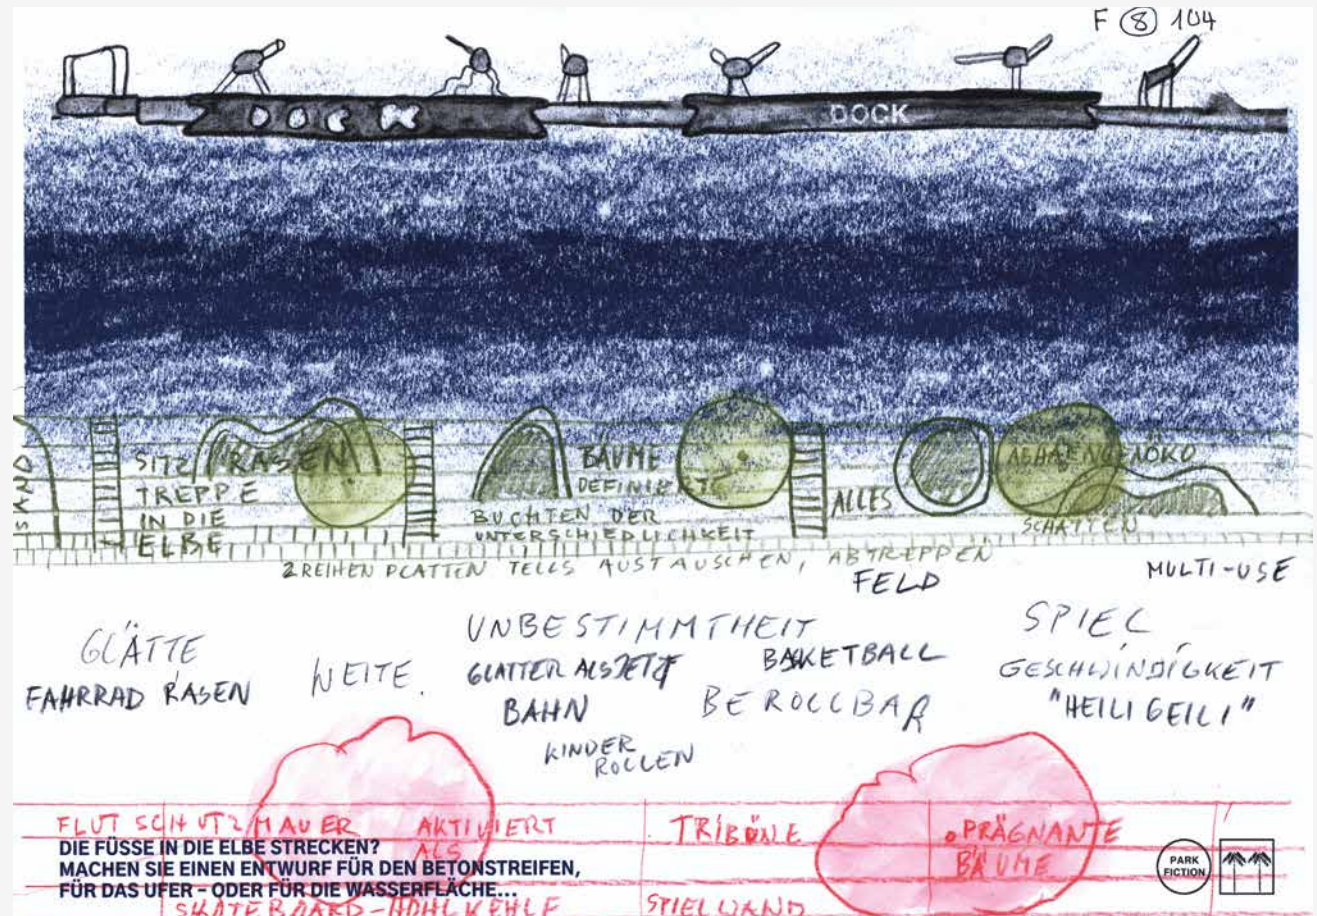 F 8 104
DOCK
DOCK
SAND
SITZ
TREPPE
IN DIE
ELBE
RASEN
BÄUME
BUCHTEN DER
UNTERSCHIEDLICHKEIT
ALLES
ÖKO
SCHATTEN
2 REIHEN PLATTEN TEILS AUSTAUSCHEN, ABTREPPEN
FELD
MULTI-USE
GLÄTTE
FAHRRAD RASEN
WEITE.
UNBESTIMMTHEIT
GLATTER ALS JETZT
BAHN
KINDER
ROLLEN
BASKETBALL
BEROLLBAR
SPIEL
GESCHWINDIGKEIT
"HEILI GEILI"
FLUTSCHUTZMAUER AKTIVIERT
ALS
TRIBÜNE
PRÄGNANTE
BÄUME
DIE FÜSSE IN DIE ELBE STRECKEN?
MACHEN SIE EINEN ENTWURF FÜR DEN BETONSTREIFEN,
FÜR DAS UFER – ODER FÜR DIE WASSERFLÄCHE...
SKATEBOARD-HOHLKEHLE
SPIELWAND
PARK
FICTION